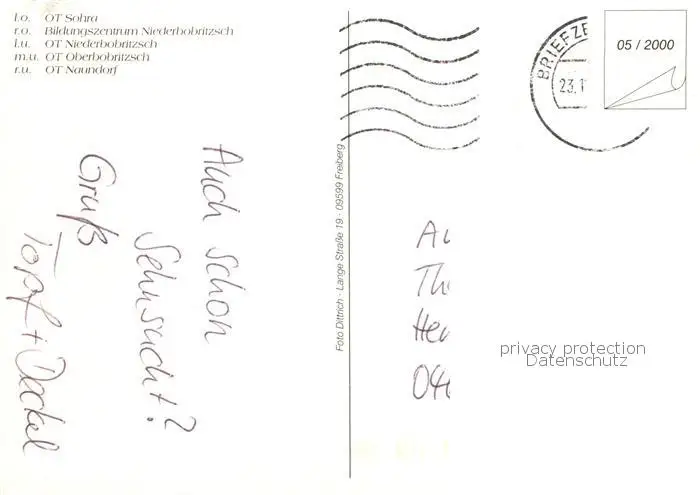 l.o. OT Sohra
r.o. Bildungszentrum Niederbobritzsch
l.u. OT Niederbobritzsch
m.u. OT Oberbobritzsch
r.u. OT Naundorf
Auch schon
Sehnsucht?
Gruß
Topf + Deckel
Foto Dittrich · Lange Straße 19 · 09599 Freiberg
BRIEFZE
23.1
05 / 2000
Th
He
04
privacy protection
Datenschutz